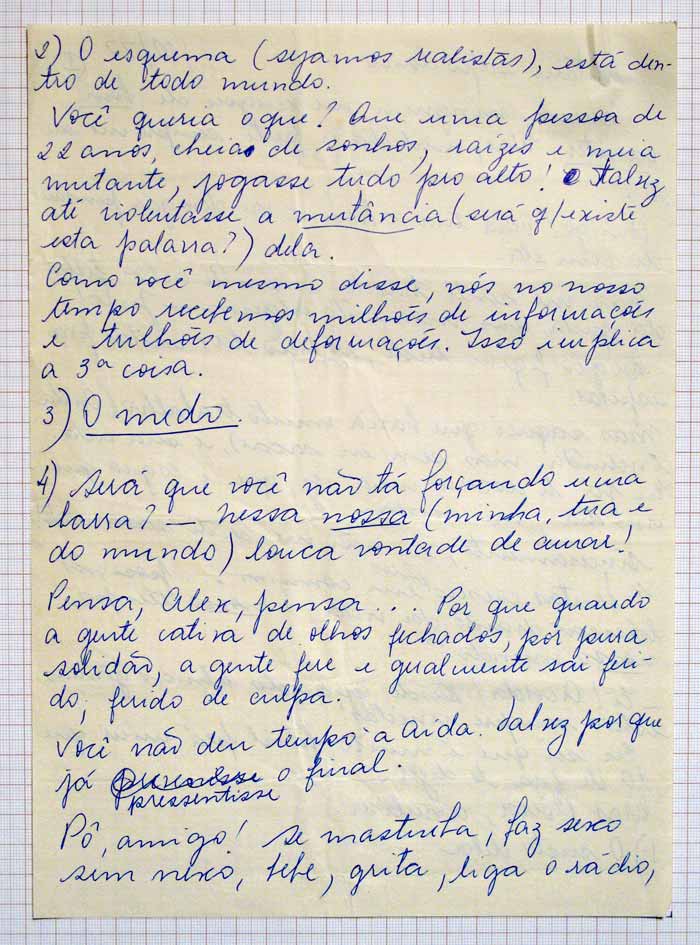 2) O esquema (sejamos realistas), está den-
tro de todo mundo.
Você queria o que? Que uma pessoa de
22 anos, cheia de sonhos, raízes e meia
mutante, jogasse tudo pro alto! e talvez
até violentasse a mutância (será q/ existe
esta palavra?) dela.
Como você mesmo disse, nós no nosso
tempo recebemos milhões de informações
e trilhões de deformações. Isso implica
a 3ª coisa.
3) O medo.
4) Será que você não tá forçando uma
barra? — nessa nossa (minha, tua e
do mundo) louca vontade de amar!
Pensa, Alex, pensa... Por que quando
a gente cativa de olhos fechados, por pura
solidão, a gente fere e igualmente sai feri-
do, ferido de culpa.
Você não deu tempo a Aida. Talvez porque
já o final.
pressentisse
Pô, amigo! se masturba, faz sexo
sem nexo, bebe, grita, liga o rádio,